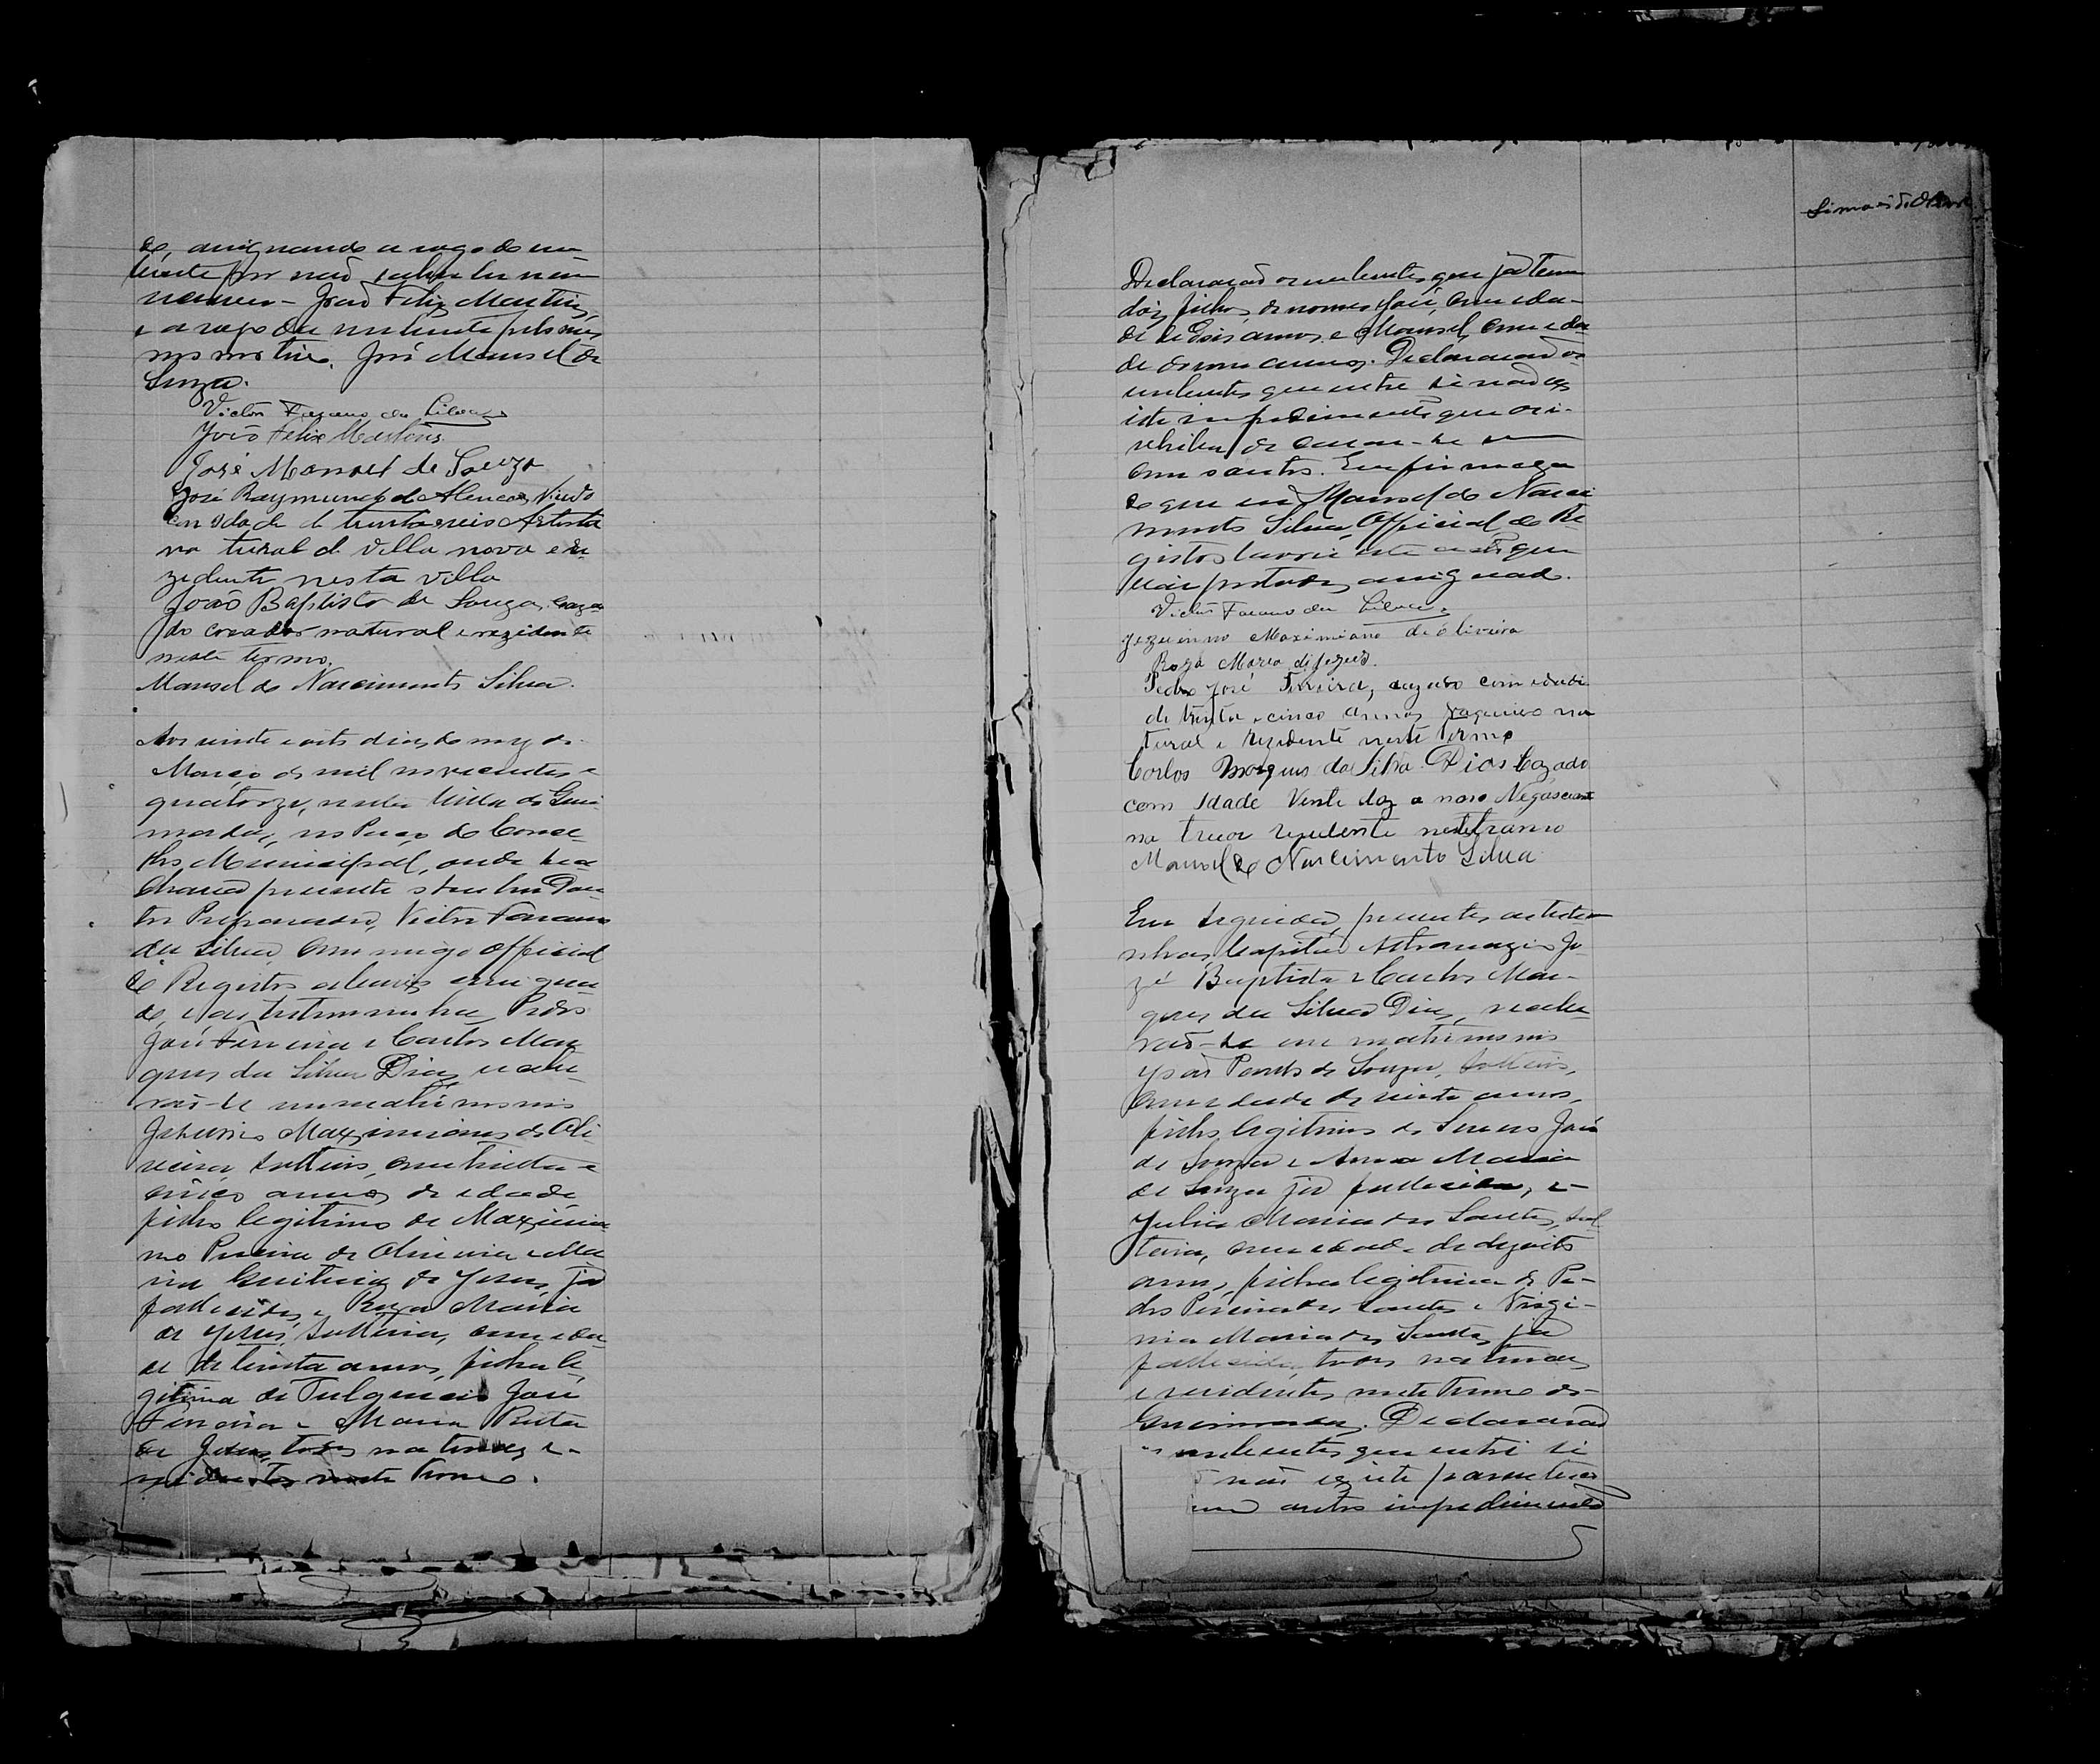 do, assignando a rogo do nu-
bente por não saber ler nem
escrever - João Felix Martins,
e a rogo da nubente pelo mes-
mo motivo, José Manoel de
Souza.
Victor Fasano da Silva
João Felix Martins
José Manoel de Souza
José Raymundo de Alencar, Viuvo
com idade de trinta seis Artista
na tural de Villa nova e re-
zidente nesta villa
João Baptista de Souza, Caza-
do creador natural e rezidente
neste termo.
Manoel do Nascimento Silva.
Aos vinte e oito dias do mez de
Março de mil novecentos e
quatorze, nesta Villa do Quei-
madas, no Paço do Conce-
lho Municipal, onde se a-
chava presente o Senhor Dou-
tor Preparador, Victor Fasano
da Silva, commigo Official
do Registro abaixo assigna-
do, e as testemunhas Pedro
José Ferreira e Carlos Mar-
ques da Silva Dias, rece-
rão-se em matrimonio
Jesuino Maximiano de Oli-
veira, solteiro, com trinta e
cinco annos de edade,
filho legitimo de Maximia-
no Pereira de Oliveira e Ma-
ria Quiteria de Jesus, já
fallecidos, e Roza Maria
de Jesus, solteira, com eda-
de de trinta annos, filha le-
gitima de Fulgencio José
Ferreira e Maria Rita
de Jesus, todos naturaes e
residentes neste termo.
Simões de
Declararão os nubentes, que já tem
dois filhos, de nomes José, com eda-
de de dois annos, e Manoel, com eda-
de de um anno. Declararão os
nubentes que entre si não ex-
iste impedimento que os i-
nhiba de casar-se um
com o outro. Em firmeza
do que eu, Manoel do Nasci
mento Silva, Official do Re
gistro lavrei este acto que
vai por todos assignado.
Victor Fasano da Silva.
Jezuenno Maximiano de oliveira
Roza Maria de jezus.
Pedro José Ferreira, cazado com idade
de trinta e cinco annos vaqueiro na
tural e rezidente neste termo
Carlos Marques da Silva Dias Cazado
com Idade Vente e nove Negociante
na turar rezidente neste tramo
Manoel do Nascimento Silva
Em seguida, presentes as testem-
nhas, Capitão Athanazio Jo-
zé Baptista e Carlos Mar-
ques da Silva Dias, recebe-
rão-se em matrimonio
de Souza, solteiro,
com edade de vinte annos,
filho legitimo de José
de Souza e Anna Maria
de Souza já fallecida, e
Julia Maria dos Santos, sol-
teira, com edade de dezoito
annos, filha legitima de Pe-
dro Pereira dos Santos e Virgi-
nia Maria dos Santos, já
fallecida, todos naturaes
e residentes neste termo de
Queimadas. Declararão
os nubentes que entre si
não existe parentesco
nem outro impedimento